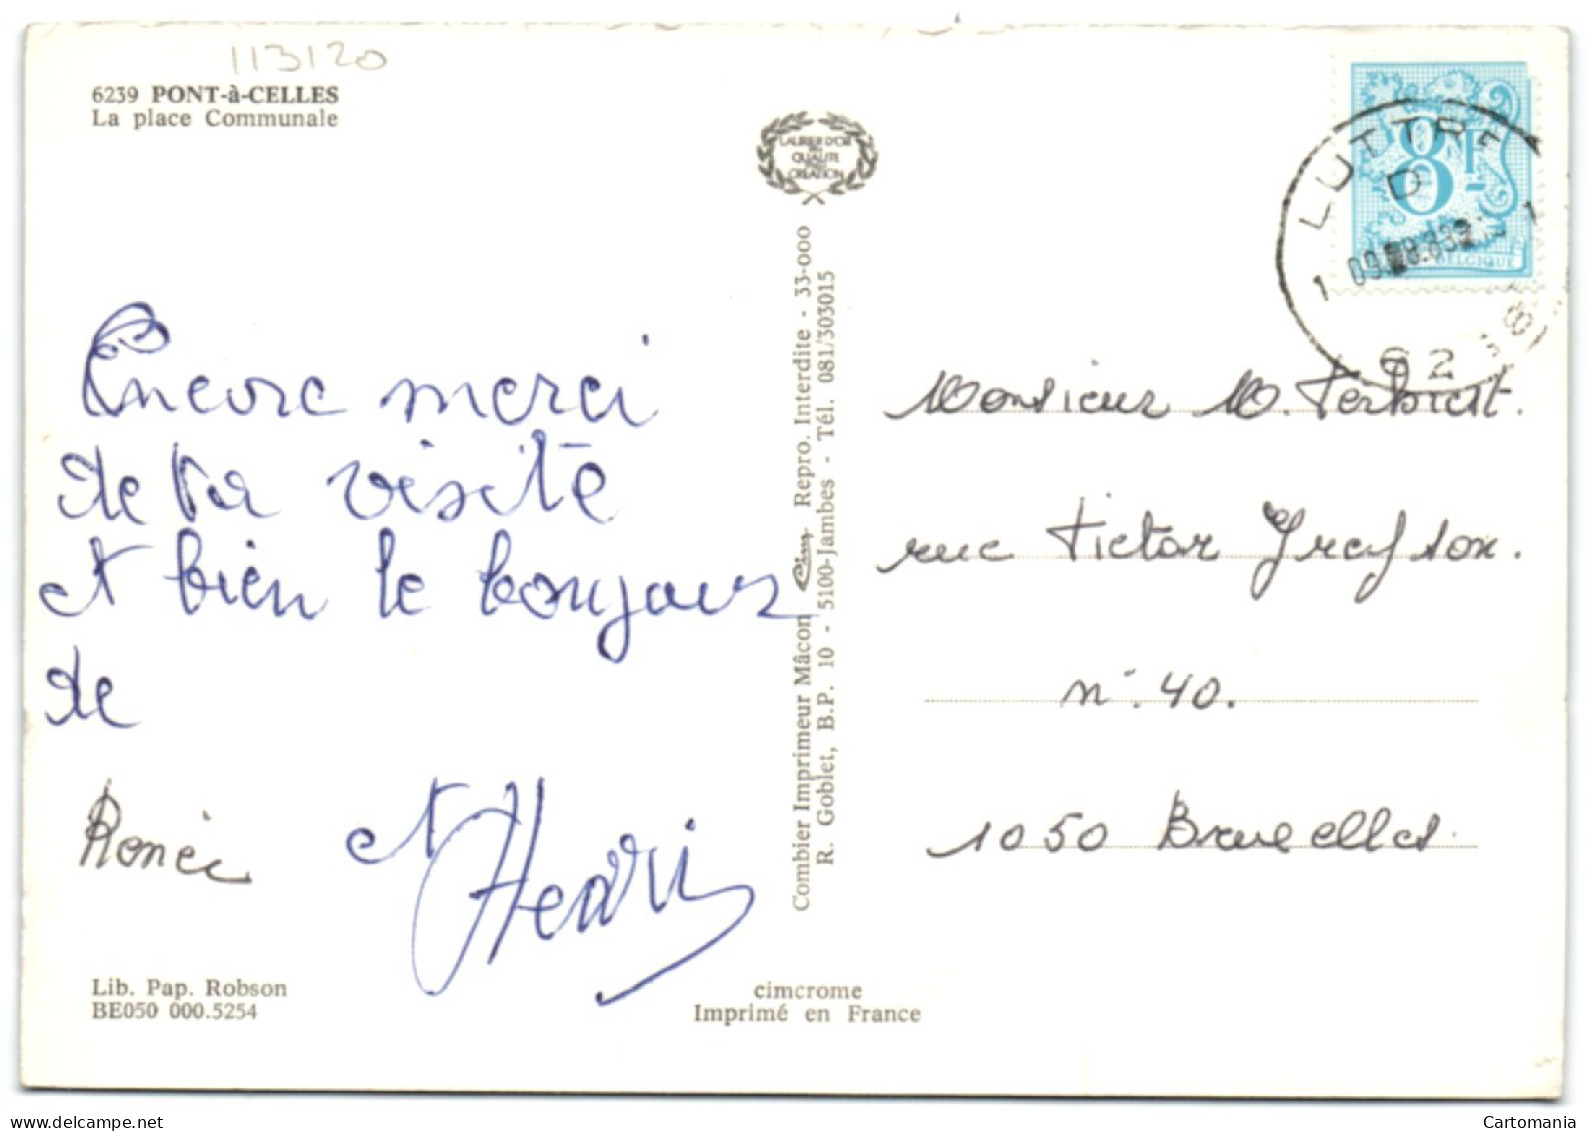 113120
6239 PONT-à-CELLES
La place Communale
LAURIER D'OR
DE
QUALITE
CREATION
8F
BELGIQUE
LUTTRE
D
1
1
62
Encore merci
de ta visite
et bien le bonjour
de
Renée et Henri
Combier Imprimeur Mâcon Cim Repro. Interdite - 33-000
R. Goblet, B.P. 10 - 5100-Jambes - Tél. 081/303015
Monsieur M. Verbiest.
rue Victor Greyson.
n° 40.
1050 Bruxelles
Lib. Pap. Robson
BE050 000.5254
cimcrome
Imprimé en France
Cartomania